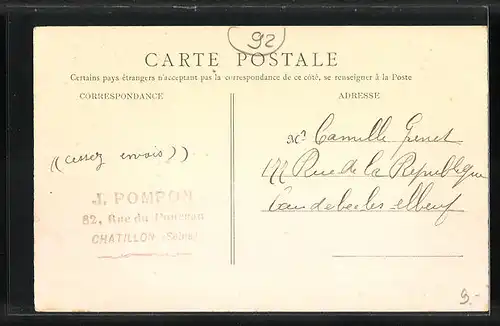 92
CARTE POSTALE
Certains pays étrangers n'acceptant pas la correspondance de ce côté, se renseigner à la Poste
CORRESPONDANCE
ADRESSE
((cessez envois))
J. POMPON
82, Rue du
CHATILLON (Seine)
Mr Camille Grenet
177 Rue de la Republique
Caudebec les elbeuf
9.-